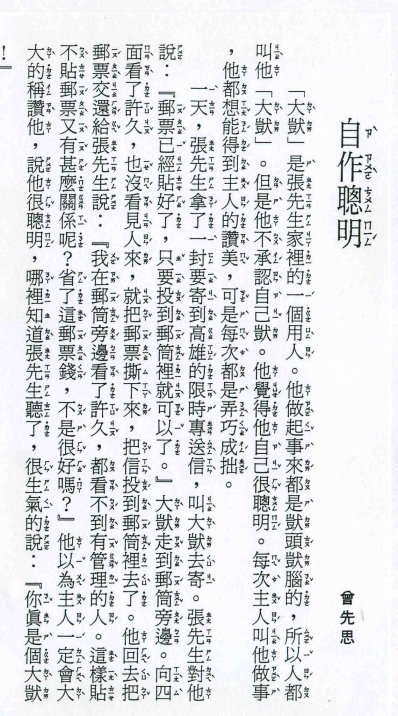 自作聰明
曾先思
「大獃」是張先生家裡的一個用人。他做起事來都是獃頭獃腦的，所以人都
叫他「大獃」。但是他不承認自己獃。他覺得他自己很聰明。每次主人叫他做事
，他都想能得到主人的讚美，可是每次都是弄巧成拙。
一天，張先生拿了一封要寄到高雄的限時專送信，叫大獃去寄。張先生對他
說：『郵票已經貼好了，只要投到郵筒裡就可以了。』大獃走到郵筒旁邊。向四
面看了許久，也沒看見人來，就把郵票撕下來，把信投到郵筒裡去了。他回去把
郵票交還給張先生說：『我在郵筒旁邊看了許久，都看不到有管理的人。這樣貼
不貼郵票又有甚麼關係呢？省了這郵票錢，不是很好嗎？』他以為主人一定會大
大的稱讚他，說他很聰明，哪裡知道張先生聽了，很生氣的說：『你眞是個大獃
！』